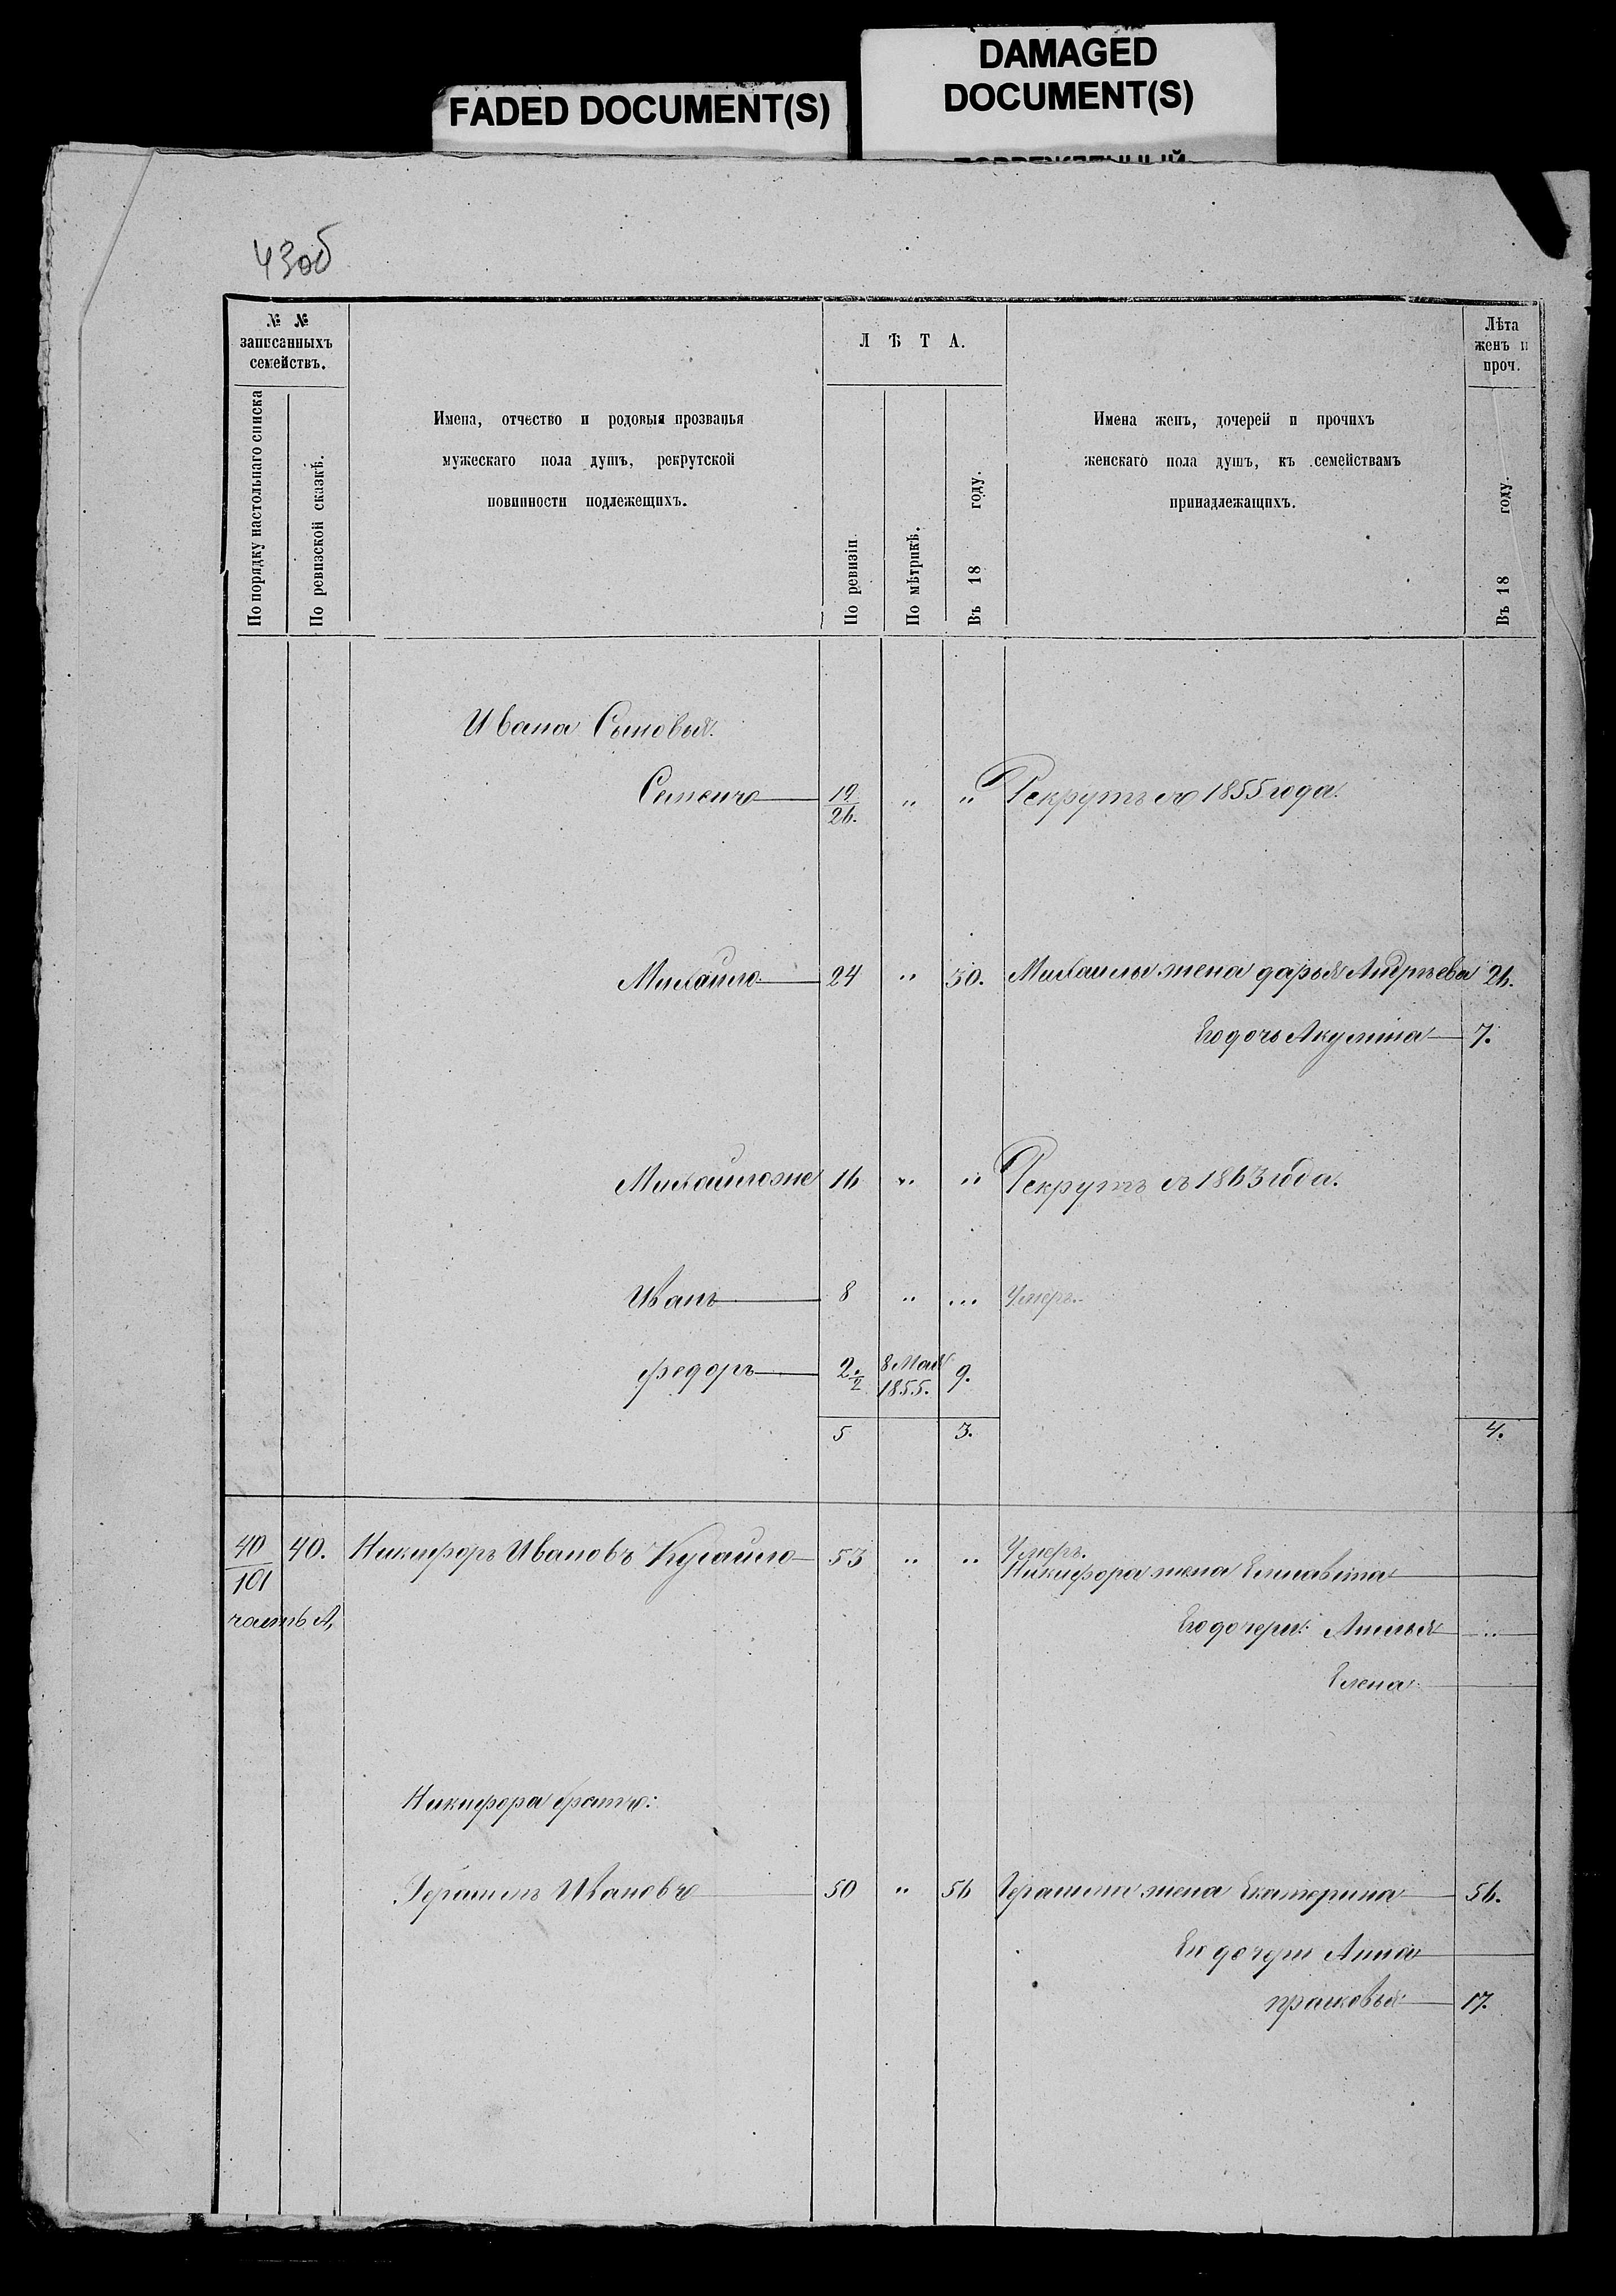 FADED DOCUMENT(S)
DAMAGED
DOCUMENT(S)
43об
№ №
записанныхъ
семействъ.
По порядку настольнаго списка
По ревизской сказкѣ.
Имена, отчество и родовыя прозванья
мужескаго пола душъ, рекрутской
повинности подлежещихъ.
ЛѢТА.
По ревизіи
По мѣтрикѣ.
Въ 18 году.
Имена женъ, дочерей и прочихъ
женскаго пола душъ, къ семействамъ
принадлежащихъ.
Лѣта
женъ и
проч.
Въ 18 году.
Ивана Сыновья.
Семенъ 19/26. " " Рекрутъ съ 1855 года.
Михайло 24 " 30. Михаилы жена дарья Андрѣева 26.
Его дочь Акулина 7.
Михайло же 16 " " Рекрутъ съ 1863 года.
Иванъ 8 " ... Умеръ.
федоръ 2 8 Мая 1855. 9.
5 3. 4.
40/101 40. Никифоръ Ивановъ 53 " " Умеръ.
Никифора жена Елисавета
часть А,
Его дочери: Елена
Никифора братъ:
Герасимъ Ивановъ 50 " 56 Герасима жена Екатерина 56.
Ея дочери Анна
прасковья 17.